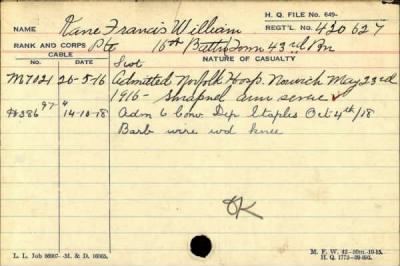 H. Q. FILE No. 649-
NAME Kane Francis William REGT'L. No. 420627
RANK AND CORPS Pte 16th Battn Form 43rd Bn
CABLE
No. DATE NATURE OF CASUALTY
Scot
M7021 26-5-16 Admitted Norfolk Hosp. Norwich May 23rd
1916 - Shrapnel arm severe
14-10-18 Adm 6 Conv Dep Etaples Oct 4th/18
Barb wire wd knee
OK
L. L. Job 86907 -M. & D. 16065.
M. F. W. 42-50m.-10-15.
H. Q. 1772-39-893.